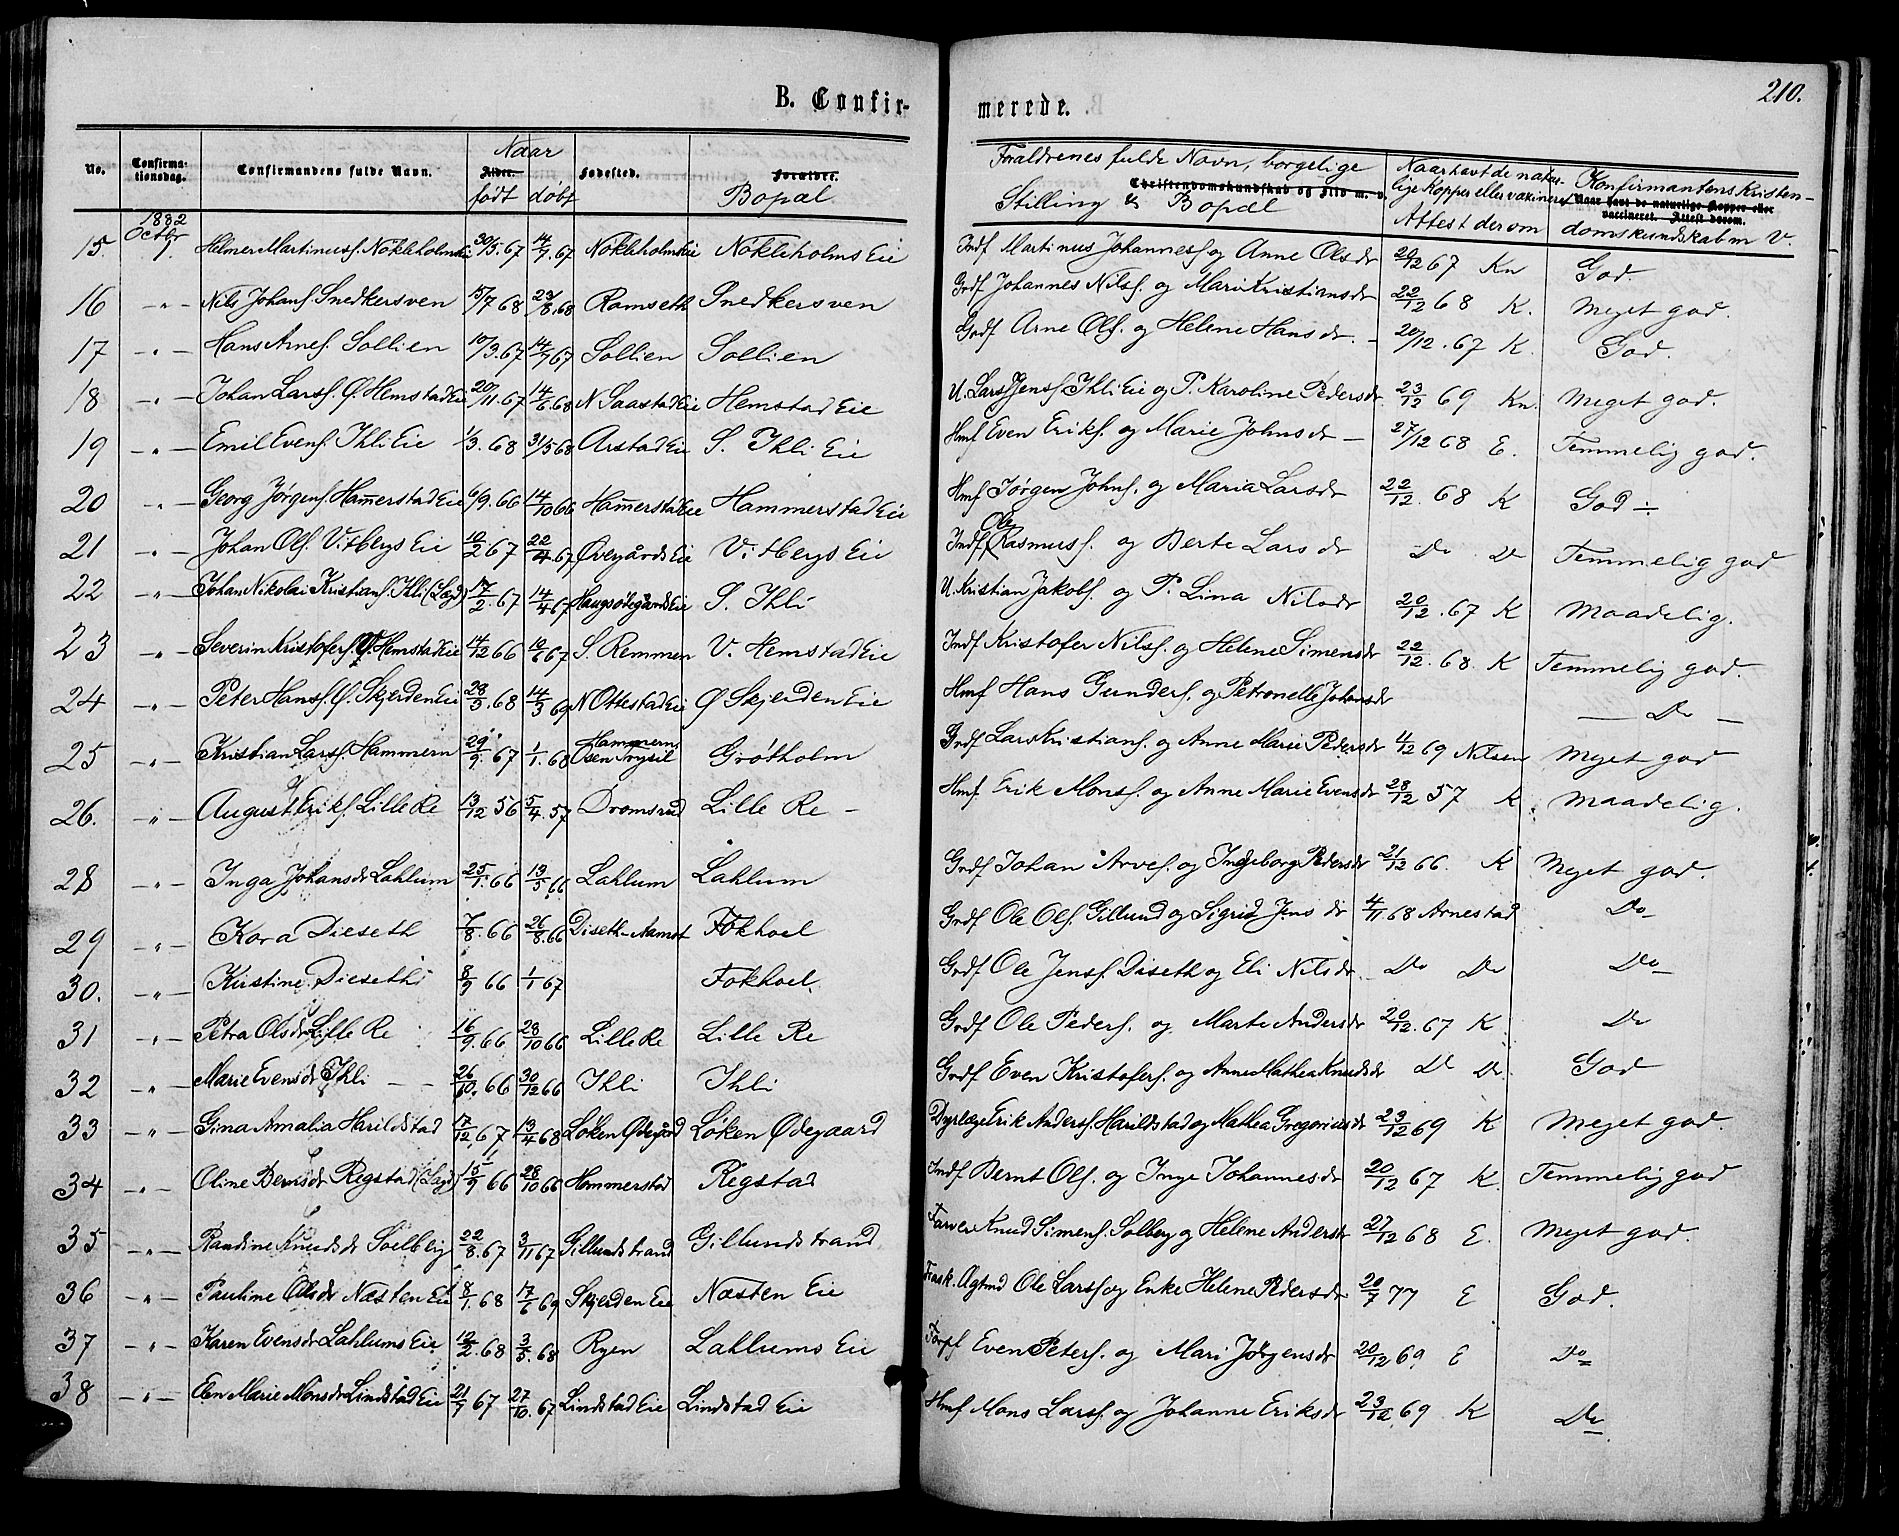 210.
B. Confirmerede.
No. | Confirmationsdag. | Confirmandens fulde Navn. | Naar Alder. født | døbt | Fødested. | Forælder. Bopæl | Forældrenes fulde Navn, borgelige Stilling & Bopæl Christendomskundskab og Flid m. v. | Naar havt de naturlige Kopper eller vakcineret Attest derom | Konfirmantens Kristendomskundskab m V. Naar havt de naturlige Kopper eller vaccineret. Attest derom.
1882 Octbr
15. | 1. | Helmer Martinuss. Nökleholmseie | 30/3.67 | 14/7.67 | Nökleholmseie | Nökleholms Eie | Indf Martinus Johanness og Anne Olsdr | 20/12 67 Kn | God.
16 | " | Nils Johans Snedkersven | 15/7 68 | 23/8.68 | Ramseth | Snedkersven | Grdf Johannes Nilss. og Mari Kristiansdr | 22/12 68 K. | Meget god.
17 | " | Hans Arnes. Sollien | 10/3.67 | 14/7 67 | Sollien | Sollien | Grdf Arne Ols. og Helene Hansdr. | 20/12.67 K. | God.
18 | " | Johan Larss. Ø. Hemstad Eie | 20/11.67 | 14/6.68 | N Saastad Eie | Hemstad Eie | U. Lars Jenss. Ihli Eie og P. Karoline Pedersdr. | 23/12 69 Kn. | Meget god.
19 | " | Emil Evens. Ihli Eie | 1/3.68 | 31/5 68 | Arstad Eie | S. Ihli Eie | Hmf Even Eriks. og Marie Johnsdr | 27/12 68 E. | Temmelig god.
20 | " | Georg Jørgens. Hamerstad Eie | 6/9.66 | 14/10 66 | Hamerstad Eie | Hammerstad Eie | Hmf Jörgen Johns. og Maria Larsdr | 22/12.68 K | God ÷
21 | " | Johan Ols. Vitbergs Eie | 10/2 67 | 22/4.67 | Øvergårds Eie | Vitbergs Eie | Indf Ole Rasmuss. og Berte Larsdr | Do Do | Temmelig god
22 | " | Johan Nikolai Kristians. Ihli (Lægd) | 17/2.67 | 14/4 67 | Haugsødegårds Eie | S. Ihli | U. Kristian Jakobs. og P. Lina Nilsdr | 20/12.67 K | Maadelig.
23 | " | Severin Kristofers. V. Hemstad Eie | 14/12 66 | 10/6 67 | S. Remmen | V. Hemstad Eie | Indf Kristofer Nilss. og Helene Simensdr | 22/12.68 K | Temmelig god.
24 | " | Peter Hanss. Ø. Skjerden Eie | 28/5.68 | 14/3 69 | N Ottestad Eie | Ø Skjerden Eie | Hmf Hans Gunders. og Petronelle Johansdr | | Do
25 | " | Kristian Larss. Hammern | 29/9.67 | 1/1.68 | Hammern Osen Trysil | Gröthölm | Grdf Lars Kristians. og Anne Marie Pedersdr | 4/12 69 Nilsen | Meget god
26. | " | August Eriks. Lille Re | 13/12 56 | 5/4.57 | Dromsrud | Lille Re | Hmf. Erik Monss. og Anne Marie Evensdr | 28/12 57 K. | Maadelig.
28 | " | Inga Johansdr Lahlum | 25/1.66 | 13/5 66 | Lahlum | Lahlum | Grdf Johan Arves. og Ingeborg Pedersdr | 21/12 66. K | Meget god.
29 | " | Kora Dieseth | 7/8.66 | 26/8.66 | Diseth-Aamot | Fokhoel | Grdf Ole Ols. Gillund og Sigrid Jensdr | 4/11 68 Arnestad | Do
30. | " | Kirstine Dieseth | 8/9 66 | 1/1 67 | | Fokhoel. | Grdf Ole Jenss. Diseth og Eli Nilsdr. | Do Do | Do
31 | " | Petra Olsdr Lille Re | 16/9.66 | 28/10 66 | Lille Re | Lille Re | Grdf Ole Peders. og Marte Andersdr | 20/12.67 K. | Do
32 | " | Marie Evensdr Ihli | 26/10.66 | 30/12 66 | Ihli | Ihli | Grdf Even Kristofers. og Anne Mathea Knudsdr | Do Do. | God
33 | " | Gina Amalia Harildstad | 17/12.67 | 13/4 68 | Løken Ødegård | Løken Ødegaard | Dyrlæge Erik Anders. Harildstad og Mathea Gregoriusdr | 23/12 69 K | Meget god.
34 | " | Oline Berntsdr Regstad (Lægd) | 15/9 66 | 28/10 66 | Hammerstad | Regstad | Indf. Bernt Ols. og Inge Johannesdr | 20/12 67 K. | Temmelig god
35 | " | Randine Knudsdr Solberg | 22/8.67 | 3/11 67 | Gillundstrand | Gillundstrand | Farver Knud Simens. Solberg og Helene Andersdr | 27/12 68 E. | Meget god.
36 | " | Pauline Olsdr Næsten Eie | 8/1.68 | 17/6 69 | Skjerden Eie | Næsten Eie | Frask. Agtmd Ole Larss og Enke Helene Pedersdr | 20/7 77 E | God.
37 | " | Karen Evensdr Lahlums Eie | 12/2.68 | 3/5.68 | Ryen | Lahlums Eie | Forpf Even Peters. og Mari Jörgensdr | 20/12 69. E | Do
38 | " | Elen Marie Monsdr Lindstad Eie | 21/9 67 | 27/10.67 | Lindstad Eie | Lindstad Eie | Hmf Mons Larss. og Johanne Eriksdr | 23/12.69 K | Do